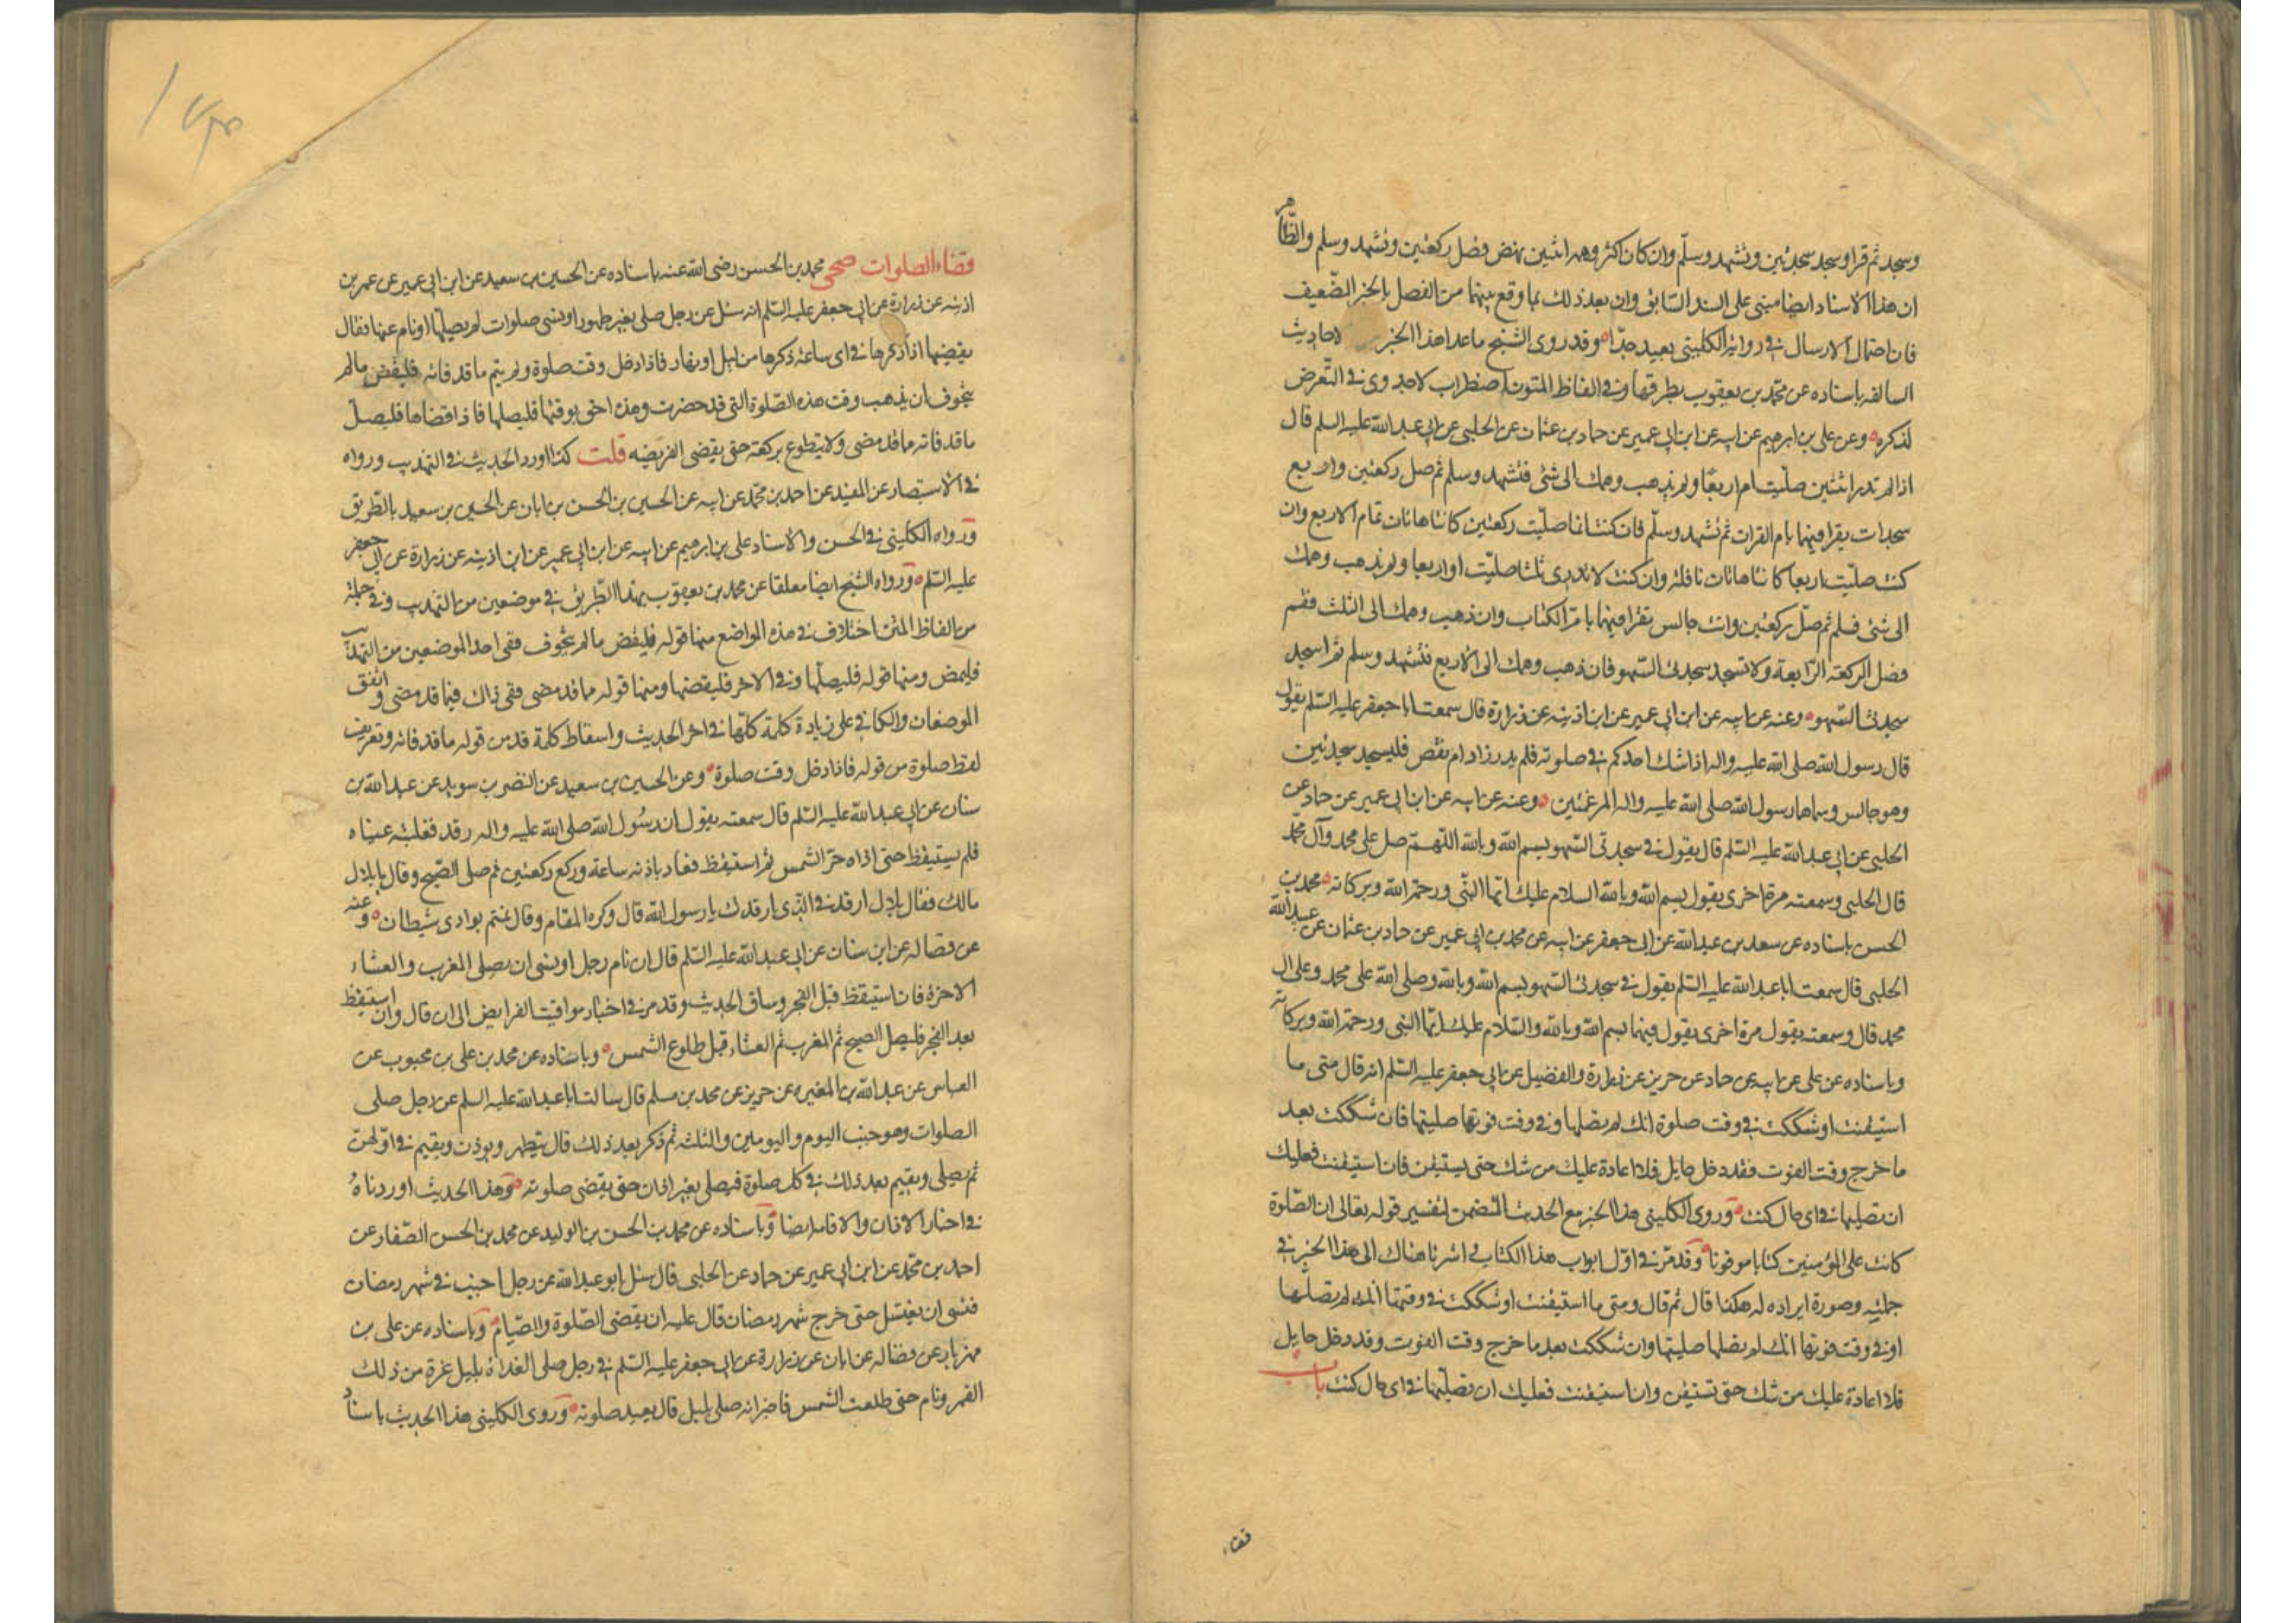 وسجد ثم قرا وسجد سجدتين وتشهد وسلّم وان كان اكثر وهمه اثنين نهض فصل ركعتين وتشهد وسلم والظاهر
ان هذا الاسناد ايضا مبنى على السند السابق وان بعد ذلك بما وقع بينهما من الفصل بالخبر الضّعيف
فان احتمال الارسال فى رواية الكلينى بعيد جدّا وقد روى الشيخ ماعدا هذا الخبر لاحاديث
السالفه باسناده عن محمّد بن يعقوب بطرقها وفى الفاظ المتون اضطراب لاجدوى فى التّعرض
لذكره وعن على بن ابرهيم عن ابيه عن ابن ابى عمير عن حماد بن عثمان عن الحلبى عن ابى عبد الله عليه السلم قال
اذا لم تدر اثنتين صلّيت ام اربعًا ولم يذهب وهمك الى شئ فتشهد وسلم ثم صل ركعتين واربع
سجدات يقرا فيهما بام القران ثم تشهد وسلّم فان كنت انما صلّيت ركعتين كانتا هاتان تمام الاربع وان
كنت صلّيت اربعا كانتا هاتان نافلة وان كنت لا تدرى ثلثا صلّيت او اربعا ولم يذهب وهمك
الى شئ فسلم ثم صلّ ركعتين وانت جالس تقرا فيهما بام الكتاب وان ذهب وهمك الى الثلث فقم
فصل الركعة الرّابعة ولا تسجد سجدتى السّهو فان ذهب وهمك الى الاربع فتشهد وسلم ثم اسجد
سجدتى السّهو وعنه عن ابيه عن ابن ابى عمير عن ابن اذينه عن زرارة قال سمعت ابا جعفر عليه السّلم يقول
قال رسول الله صلى الله عليه واله اذا شك احدكم فى صلوته فلم يدر زاد ام نقص فليسجد سجدتين
وهو جالس وسماها رسول الله صلى الله عليه واله المرغمتين وعنه عن ابيه عن ابن ابى عمير عن حماد عن
الحلبى عن ابى عبد الله عليه السّلم قال يقول فى سجدتى السّهو بسم الله وبالله اللّهمّ صل على محمد وآل محمّد
قال الحلبى وسمعته مرة اخرى يقول بسم الله وبالله السلام عليك ايّها النّبى ورحمة الله وبركاته محمد بن
الحسن باسناده عن سعد بن عبد الله عن ابى جعفر عن ابيه عن محمد بن ابى عمير عن حماد بن عثمان عن عبيد الله
الحلبى قال سمعت ابا عبد الله عليه السّلم يقول فى سجدتى السّهو بسم الله وبالله وصلى الله على محمد وعلى ال
محمد قال وسمعته يقول مرة اخرى يقول فيهما بسم الله وبالله والسّلام عليك ايّها النبى ورحمة الله وبركاته
وباسناده عن على عن ابيه عن حماد عن حريز عن زرارة والفضيل عن ابى جعفر عليه السّلم انه قال متى ما
استيقنت او شككت فى وقت صلوة انك لم تصلها وفى وقت فوتها صليتها فان شككت بعد
ما خرج وقت الفوت فقد دخل حايل فلا اعادة عليك من شك حتى يستيقن فان استيقنت فعليك
ان تصليها فى اى حال كنت وروى الكلينى هذا الخبر مع الحديث المتضمن لتفسير قوله تعالى ان الصّلوة
كانت على المؤمنين كتابا موقوتا وقد مرّ فى اوّل ابواب هذا الكتاب اشرنا هناك الى هذا الخبر فى
جملته وصورة ايراده له هكذا قال ثم قال ومتى ما استيقنت او شككت فى وقتها انك لم تصلّها
او فى وقت فوتها انك لم تصلها صليتها وان شككت بعد ما خرج وقت الفوت وقد دخل حايل
فلا اعادة عليك من شك حتى تستيقن وان استيقنت فعليك ان تصلّيها فى اى حال كنت باب
قضاء
قضاء الصلوات صحى محمد بن الحسن رضى الله عنه باسناده عن الحسين بن سعيد عن ابن ابى عمير عن عمر بن
اذينه عن زرارة عن ابى جعفر عليه السّلم انه سئل عن رجل صلى بغير طهور او نسى صلوات لم يصلّها او نام عنها فقال
يقضيها اذا ذكرها فى اى ساعة ذكرها من ليل او نهار فاذا دخل وقت صلوة ولم يتم ما قد فاته فليقض مالم
يتخوف ان يذهب وقت هذه الصّلوة التى قد حضرت وهذه احق بوقتها فليصلها فاذا قضاها فليصلّ
ما قد فاته ما قد مضى ولا يتطوع بركعة حتى يقضى الفريضه قلت كذا اورد الحديث فى التهذيب ورواه
فى الاستبصار عن المفيد عن احمد بن محمّد عن ابيه عن الحسين بن الحسن بن ابان عن الحسين بن سعيد بالطّريق
ورواه الكلينى فى الحسن والاسناد على بن ابرهيم عن ابيه عن ابن ابى عمير عن ابن اذينه عن زرارة عن ابى جعفر
عليه السّلم ورواه الشيخ ايضا معلقا عن محمد بن يعقوب بهذا الطّريق فى موضعين من التهذيب وفى جملة
من الفاظ المتن اختلاف فى هذه المواضع منها قوله فليقض مالم يتخوف ففى احد الموضعين من التهذيب
فليمض ومنها قوله فليصلّها وفى الاخر فليقضها ومنها قوله ما قد مضى ففى ذاك فيما قد مضى واتفق
الموضعان والكافى على زيادة كلمة كلّها فى اخر الحديث واسقاط كلمة قد من قوله ما قد فاته وتعريف
لفظ صلوة من قوله فاذا دخل وقت صلوة وعن الحسين بن سعيد عن النضر بن سويد عن عبد الله بن
سنان عن ابى عبد الله عليه السّلم قال سمعته يقول ان رسُول الله صلى الله عليه واله رقد فغلبته عيناه
فلم يستيقظ حتى اذاه حرّ الشمس ثم استيقظ فعاد باذنه ساعة وركع ركعتين ثم صلى الصّبح وقال يا بلال
مالك فقال بلال ارقدنى الذى ارقدك يا رسول الله قال وكره المقام وقال نمتم بوادى شيطان وعنه
عن فضاله عن ابن سنان عن ابى عبد الله عليه السّلم قال ان نام رجل او نسى ان يصلى المغرب والعشاء
الاخرة فان استيقظ قبل الفجر وساق الحديث وقد مر فى اخبار مواقيت الفرايض الى ان قال وان استيقظ
بعد الفجر فليصل الصبح ثم المغرب ثم العشاء قبل طلوع الشمس وباسناده عن محمد بن على بن محبوب عن
العباس عن عبد الله بن المغيره عن حريز عن محمد بن مسلم قال سالت ابا عبد الله عليه السلم عن رجل صلى
الصلوات وهو جنب اليوم واليومين والثلثة ثم ذكر بعد ذلك قال يتطهر ويوذن ويقيم فى اوّلهنّ
ثم يصلى ويقيم بعد ذلك فى كل صلوة فيصلى بغير اذان حتى يقضى صلوته وهذا الحديث اوردناهُ
فى اخبار الاذان والاقامه ايضا وباسناده عن محمد بن الحسن بن الوليد عن محمد بن الحسن الصّفار عن
احمد بن محمّد عن ابن ابى عمير عن حماد عن الحلبى قال سئل ابو عبد الله عن رجل اجنب فى شهر رمضان
فنسى ان يغتسل حتى خرج شهر رمضان قال عليه ان يقضى الصّلوة والصّيام وباسناده عن على بن
مهزيار عن فضاله عن ابان عن زرارة عن ابى جعفر عليه السّلم فى رجل صلى الغداة بليل غرة من ذلك
القمر ونام حتى طلعت الشمس فاخبر انه صلى بليل قال يعيد صلوته وروى الكلينى هذا الحديث باسناد